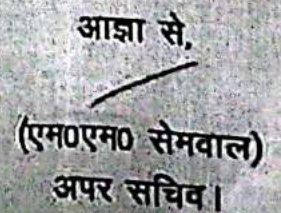 आज्ञा से,
(एम0एम0 सेमवाल)
अपर सचिव।